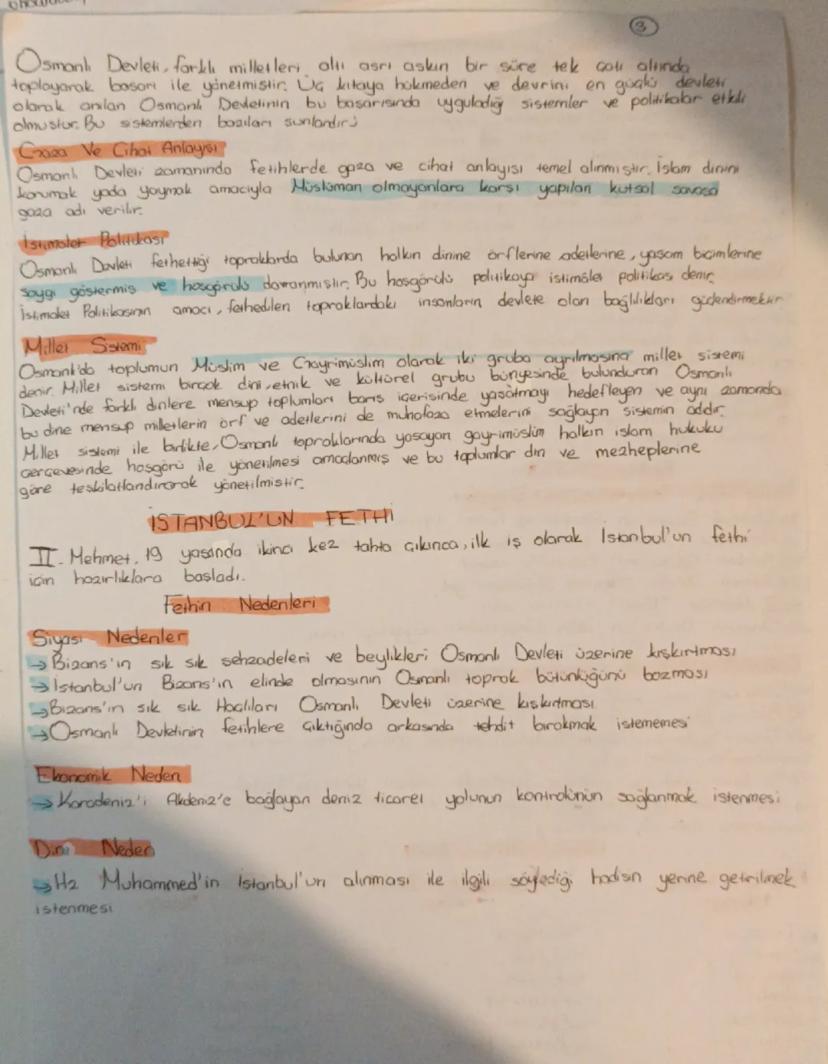 3
Osmanlı Devleti, farklı milletleri altı asrı aşkın bir süre tek çatı altında
toplayarak başarı ile yönetmiştir. Üç kıtaya hükmeden ve devrini en güçlü devleti
olarak anılan Osmanlı Devletinin bu başarısında uyguladığı sistemler ve politikalar etkili
olmuştur. Bu sistemlerden bazıları şunlardır;
Gaza Ve Cihat Anlayışı
Osmanlı Devleti zamanında fetihlerde gaza ve cihat anlayışı temel alınmıştır. İslam dinini
korumak yada yaymak amacıyla Müslüman olmayanlara karşı yapılan kutsal savaşa
gaza adı verilir.
İstimalet Politikası
Osmanlı Devleti fethettiği topraklarda bulunan halkın dinine örflerine adetlerine, yaşam biçimlerine
saygı göstermiş ve hoşgörülü davranmıştır. Bu hoşgörülü politikaya istimalet politikası denir.
İstimalet Politikasının amacı, fethedilen topraklardaki insanların devlete olan bağlılıkları güçlendirmektir
Millet Sistemi
Osmanlı'da toplumun Müslim ve Gayrimüslim olarak iki gruba ayrılmasına millet sistemi
denir. Millet sistemi birçok dini, etnik ve kültürel grubu bünyesinde bulunduran Osmanlı
Devleti'nde farklı dinlere mensup toplumları barış içerisinde yaşatmayı hedefleyen ve aynı zamanda
bu dine mensup milletlerin örf ve adetlerini de muhafaza etmelerini sağlayan sistemin adıdır.
Millet sistemi ile birlikte, Osmanlı topraklarında yaşayan gayrimüslim halkın islam hukuku
çerçevesinde hoşgörü ile yönetilmesi amaçlanmış ve bu toplumlar din ve mezheplerine
göre teşkilatlandırarak yönetilmiştir.
İSTANBUL'UN FETHİ
II. Mehmet, 19 yaşında ikinci kez tahta çıkınca, ilk iş olarak İstanbul'un fethi
için hazırlıklara başladı.
Fethin Nedenleri
Siyasi Nedenler
→ Bizans'ın sık sık şehzadeleri ve beylikleri Osmanlı Devleti üzerine kışkırtması
→ İstanbul'un Bizans'ın elinde olmasının Osmanlı toprak bütünlüğünü bozması
→ Bizans'ın sık sık Haçlıları Osmanlı Devleti üzerine kışkırtması
→ Osmanlı Devletinin fetihlere çıktığında arkasında tehdit bırakmak istememesi
Ekonomik Neden
→ Karadeniz'i Akdeniz'e bağlayan deniz ticaret yolunun kontrolünün sağlanmak istenmesi
Dini Neden
→ Hz Muhammed'in İstanbul'un alınması ile ilgili söylediği hadisin yerine getirilmek
istenmesi